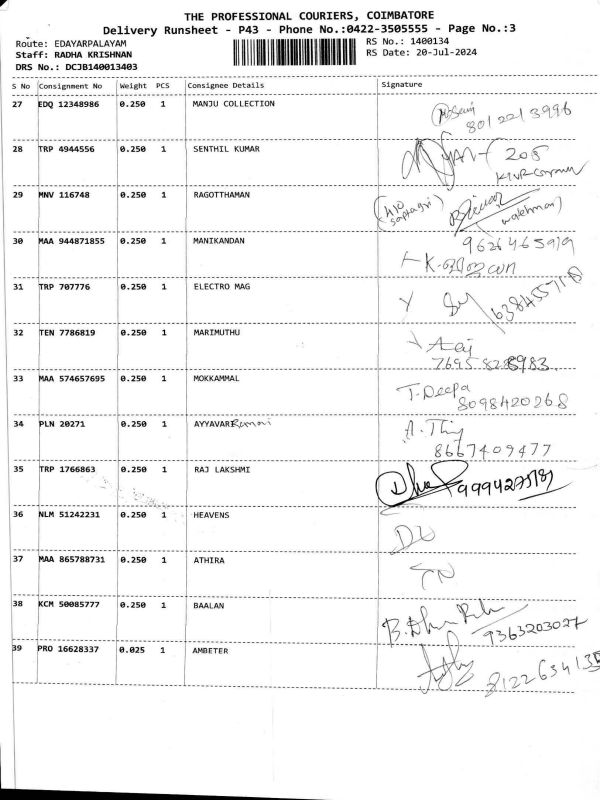 THE PROFESSIONAL COURIERS, COIMBATORE
Delivery Runsheet - P43 - Phone No.:0422-3505555 - Page No.:3
Route: EDAYARPALAYAM RS No.: 1400134
Staff: RADHA KRISHNAN RS Date: 20-Jul-2024
DRS No.: DCJB140013403
S No Consignment No Weight PCS Consignee Details Signature
27 EDQ 12348986 0.250 1 MANJU COLLECTION
8012213996
28 TRP 4944556 0.250 1 SENTHIL KUMAR
205
29 MNV 116748 0.250 1 RAGOTTHAMAN
30 MAA 944871855 0.250 1 MANIKANDAN
9626465919
31 TRP 707776 0.250 1 ELECTRO MAG
32 TEN 7786819 0.250 1 MARIMUTHU
33 MAA 574657695 0.250 1 MOKKAMMAL
T. Deepa
8098420268
34 PLN 20271 0.250 1
8667409477
35 TRP 1766863 0.250 1 RAJ LAKSHMI
36 NLM 51242231 0.250 1 HEAVENS
37 MAA 865788731 0.250 1 ATHIRA
38 KCM 50085777 0.250 1 BAALAN
9363203027
39 PRO 16628337 0.025 1 AMBETER